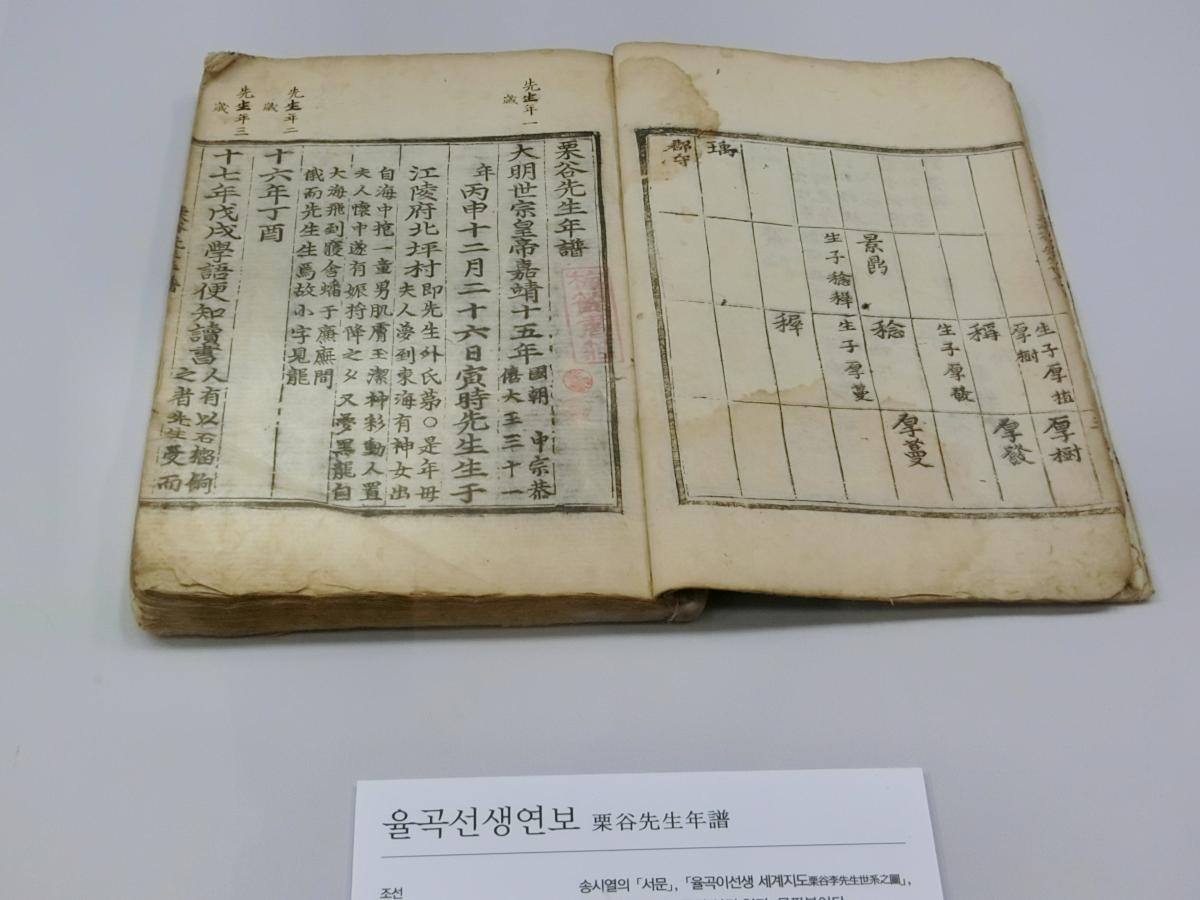 生子厚植
厚樹
厚樹
稱
厚發
生子厚發
景鼎
稔
厚蔓
生子稔穉
生子厚蔓
穉
瑀
郡守
先生年一
歲
栗谷先生年譜
大明世宗皇帝嘉靖十五年國朝 中宗恭
僖大王三十一
年丙申十二月二十六日寅時先生生于
江陵府北坪村即先生外氏第○是年母
夫人夢到東海有神女出
自海中抱一童男肌膚玉潔神彩動人置
夫人懷中遂有娠將降之夕又夢黑龍自
大海飛到寢舍蟠于廡間
俄而先生生焉故小字見龍
先生年二
歲
十六年丁酉
先生年三
歲
十七年戊戌學語便知讀書人有以石榴問
之者先生應而
율곡선생연보 栗谷先生年譜
조선
송시열의 「서문」, 「율곡이선생 세계지도栗谷李先生世系之圖」,